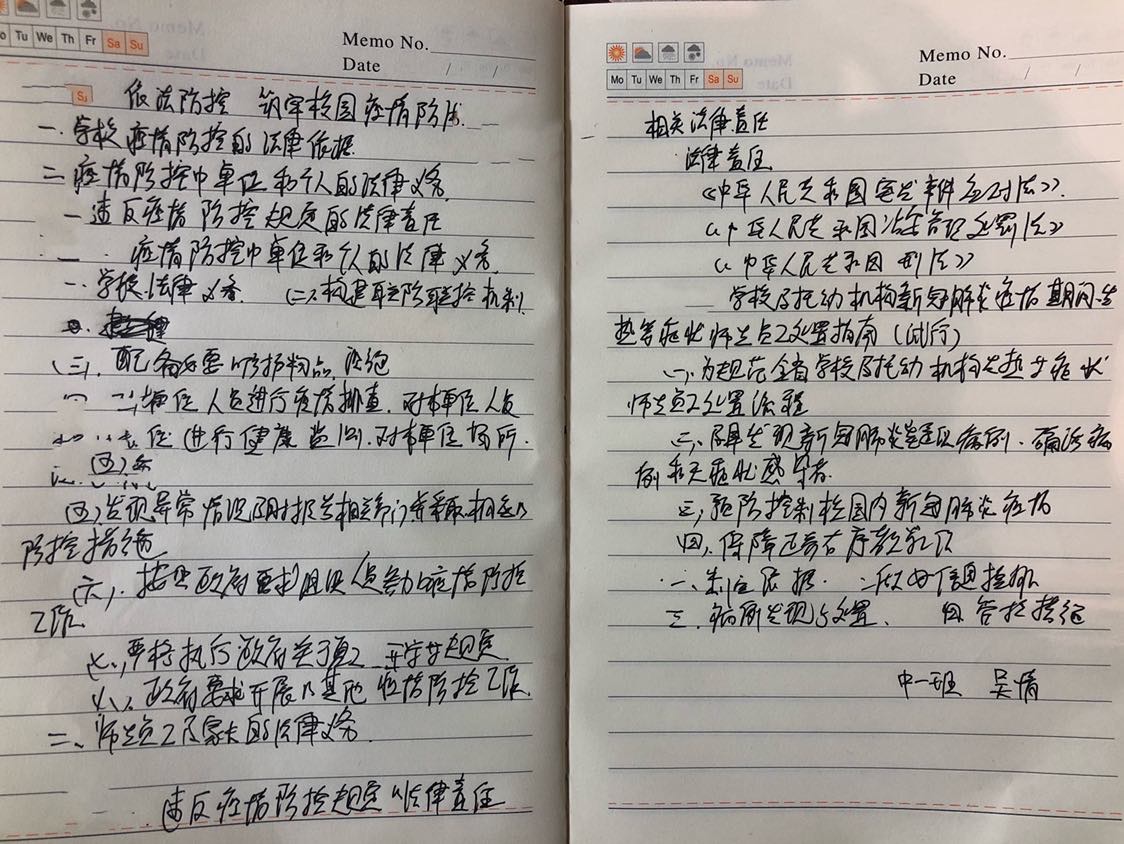 Mo Tu We Th Fr Sa Su
Memo No.
Date / /
依法防控 筑牢校园疫情防线
一.学校疫情防控的法律依据
二 疫情防控中单位和个人的法律义务
违反疫情防控规定的法律责任
疫情防控中单位和个人的法律义务
一.学校法律义务 (二)构建联防联控机制
(三).配备必要防护物品、设施
人员进行疫情排查.对本单位人员
进行健康监测.对本单位场所
(四)
(五)发现异常情况及时报告相关部门并采取相应的
防控措施
(六).按照政府要求组织人员参加疫情防控
工作.
七、严格执行政府关于复工开学等规定
(八).政府要求开展的其他疫情防控工作.
二、师生员工及家长的法律义务.
违反疫情防控规定的法律责任
Mo Tu We Th Fr Sa Su
Memo No.
Date / /
相关法律责任
法律责任
《中华人民共和国突发事件应对法》.
《中华人民共和国治安管理处罚法》
《中华人民共和国刑法》
学校及托幼机构新冠肺炎疫情期间发
热等症状师生员工处置指南(试行)
(一).为规范全省学校及托幼机构发热等症状
师生员工处置流程
二,及早发现新冠肺炎疑似病例.确诊病
例和无症状感染者.
三,预防控制校园内新冠肺炎疫情
四.保障正常教学
一、制定依据. 二做好信息排摸
三.病例发现与处置. 四.管控措施
中一班 吴情